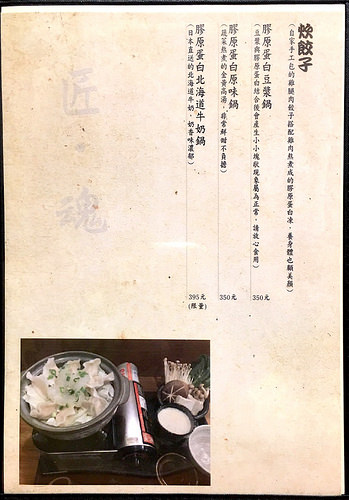 炊餃子
(自家手工包的雞腿肉餃子搭配雞肉熬煮成的膠原蛋白凍，養身體也顧美顏)
膠原蛋白豆漿鍋
(豆漿與膠原蛋白結合後會產生小小塊狀現象屬為正常，請放心食用)
350元
膠原蛋白原味鍋
(蔬菜熬煮的金黃高湯，非常鮮甜不負擔)
350元
膠原蛋白北海道牛奶鍋
(日本直送的北海道牛奶，奶香味濃郁)
395元
(限量)
匠·魂